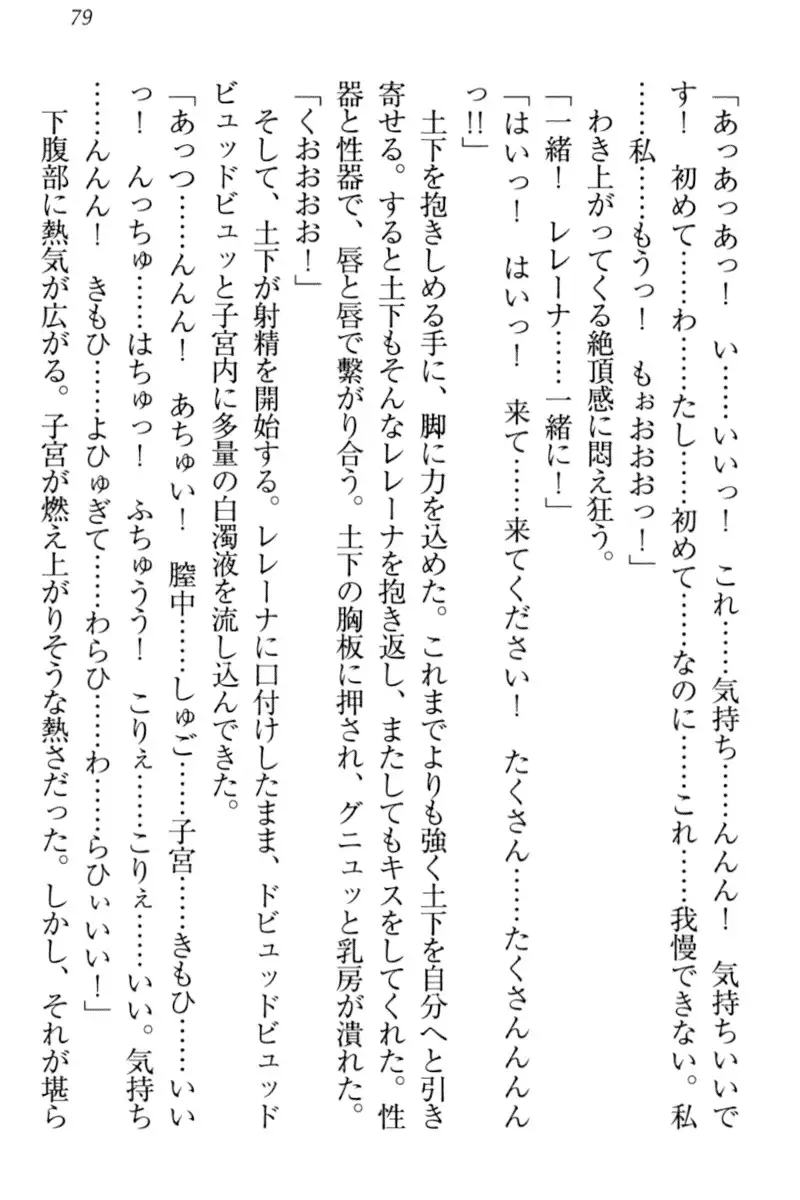 79
「あっあっあっ！　い……いいっ！　これ……気持ち……んんん！　気持ちいいで
す！　初めて……わ……たし……初めて……なのに……これ……我慢できない。私
……私……もうっ！　もぉおおおっ！」
わき上がってくる絶頂感に悶え狂う。
「一緒！　レレーナ……一緒に！」
「はいっ！　はいっ！　来て……来てください！　たくさん……たくさんんんん
っ!!」
土下を抱きしめる手に、脚に力を込めた。これまでよりも強く土下を自分へと引き
寄せる。すると土下もそんなレレーナを抱き返し、またしてもキスをしてくれた。性
器と性器で、唇と唇で繋がり合う。土下の胸板に押され、グニュッと乳房が潰れた。
「くおおおお！」
そして、土下が射精を開始する。レレーナに口付けしたまま、ドビュッドビュッド
ビュッドビュッと子宮内に多量の白濁液を流し込んできた。
「あっつ……んんん！　あちゅい！　膣中……しゅご……子宮……きもひ……いい
っ！　んっちゅ……はちゅっ！　ふちゅうう！　こりぇ……こりぇ……いい。気持ち
……んんん！　きもひ……よひゅぎて……わらひ……わ……らひぃいい！」
下腹部に熱気が広がる。子宮が燃え上がりそうな熱さだった。しかし、それが堪ら